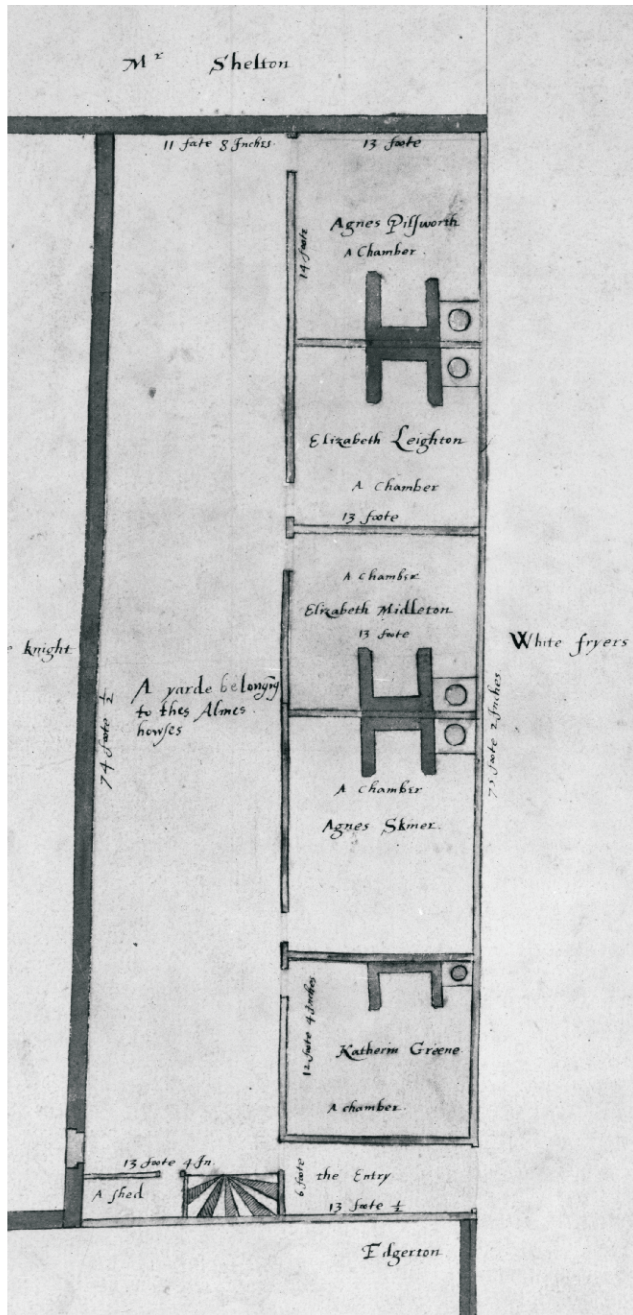 Mr Shelton
11 fate 8 Inches
13 foote
Agnes Pilsworth
A Chamber
14 foote
Elizabeth Leighton
A Chamber
13 foote
A Chamber
Elizabeth Midleton
13 foote
e knight
White fryers
A yarde belonging
to thes Almes
howses
74 foote ½
73 foote 2 Inches
A Chamber
Agnes Skiner
12 foote 4 Inches
Katherin Greene
A chamber
13 foote 4 In.
A shed
6 foote
the Entry
13 foote ½
Edgerton